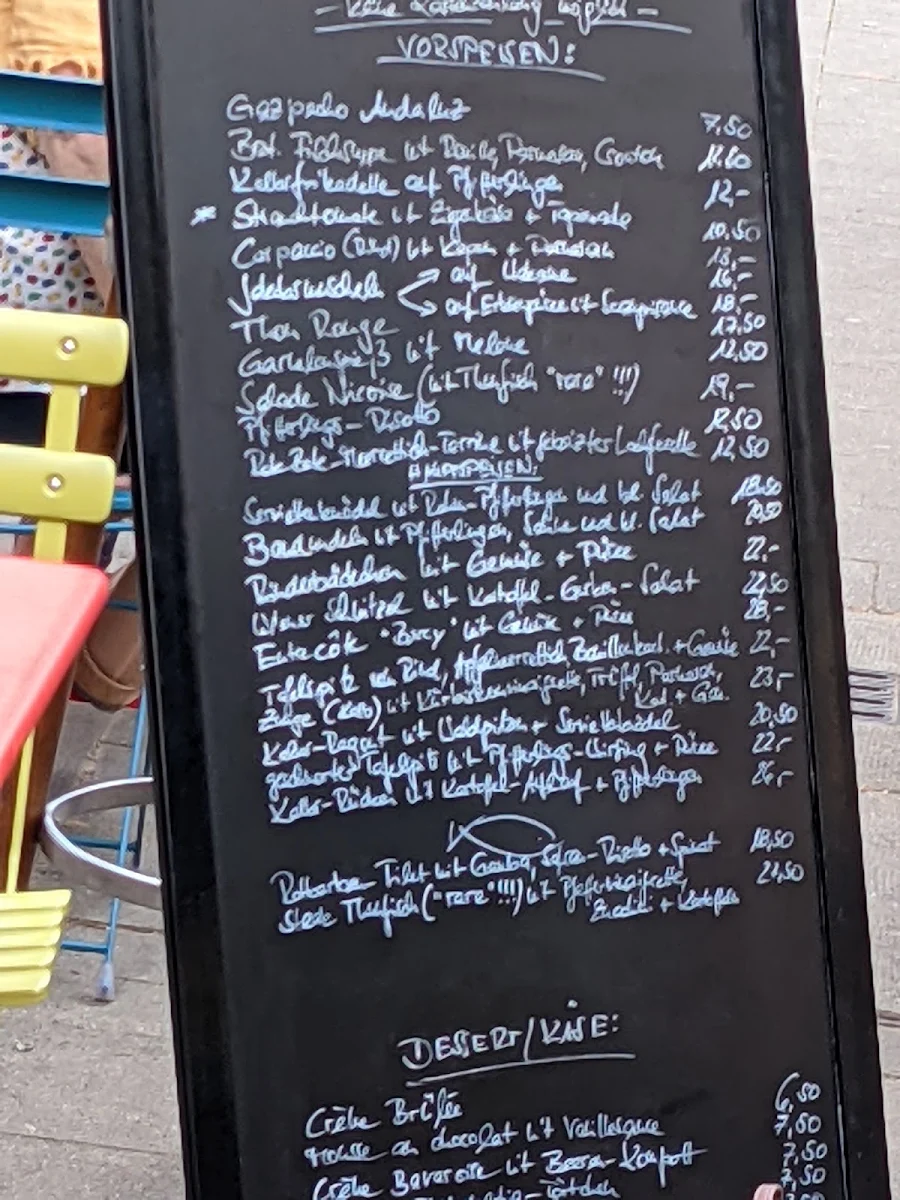 - Keine Kartenzahlung möglich -
VORSPEISEN:
Gazpacho Andaluz 7,50
Bret. Fischsuppe mit Rouille, Parmesan, Croûton
Kalbsfrikadelle auf Pfifferlingen 12,-
Strauchtomate mit Ziegenkäse + Tapenade 10,50
Carpaccio (Rind) mit Kapern + Parmesan 13,-
Jakobsmuscheln auf 16,-
auf Erbsenpüree mit 18,-
Thon Rouge 17,50
mit Melone 12,50
Salade Niçoise (mit Thunfisch "rare" !!!) 19,-
Pfifferlings-Risotto 12,50
Rote Bete-Meerrettich-Terrine mit gebeizter Lachsforelle 12,50
HAUPTSPEISEN:
Serviettenknödel mit Rahm-Pfifferlingen und kl. Salat 18,50
Bandnudeln mit Pfifferlingen, Sahne und kl. Salat
Rinderbäckchen mit Gemüse + Püree 22,-
Wiener Schnitzel mit Kartoffel-Gurken-Salat 22,50
Entrecôte "Bercy" mit Gemüse + Püree 28,-
Tafelspitz vom Rind, Apfelmeerrettich, Bouillonkart. + Gemüse 22,-
Zunge (Kalb) mit Kürbiskernvinaigrette, Trüffel, Parmesan, 23,-
Kart. + Gem.
Kalbs-Ragout mit Waldpilzen + Serviettenknödel 20,50
geschmorter Tafelspitz mit Pfifferlings-Wirsing + Püree 22,-
Kalbs-Rücken mit Kartoffel-Auflauf + Pfifferlingen 26,-
Rotbarben Filet mit Safran-Risotto + Spinat 18,50
Steak Thunfisch ("rare" !!!) mit Pfeffervinaigrette, 21,50
Zucchini + Kartoffeln
DESSERT/KÄSE:
Crème Brûlée 6,50
Mousse au chocolat mit Vanillesauce 7,50
Crème Bavaroise mit Beeren-Kompott 7,50
7,50